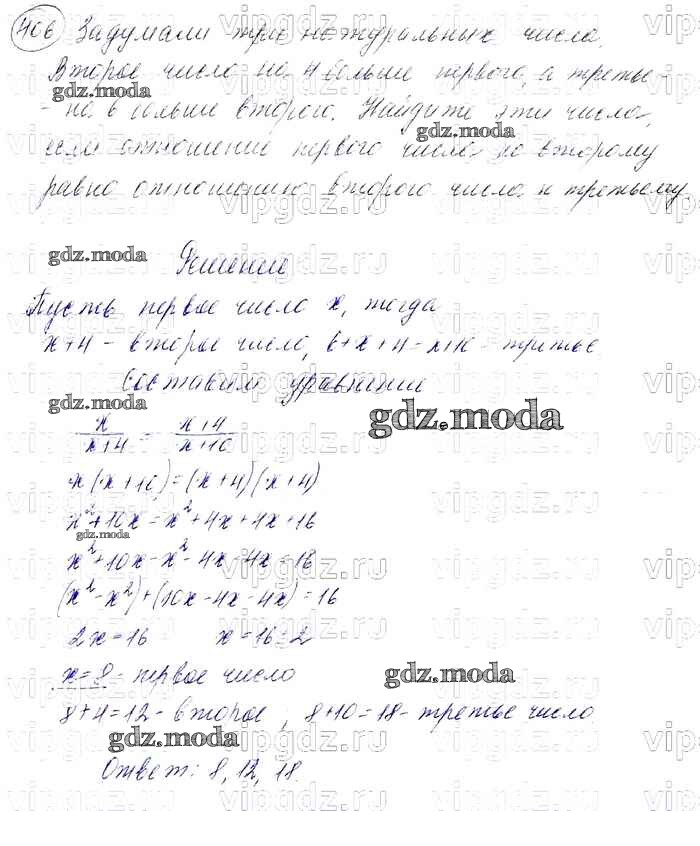 406 Задумали три натуральных числа.
Второе число на 4 больше первого, а третье -
- на 6 больше второго. Найдите эти числа,
если отношение первого числа ко второму
равно отношению второго числа к третьему
Решение
Пусть первое число x, тогда
x+4 - второе число, 6+x+4=x+10 - третье
Составим уравнение
x/(x+4) = (x+4)/(x+10)
x(x+10)=(x+4)(x+4)
x²+10x=x²+4x+4x+16
x²+10x-x²-4x-4x=16
(x²-x²)+(10x-4x-4x)=16
2x=16 x=16:2
x=8 - первое число
8+4=12 - второе ; 8+10=18 - третье число
Ответ: 8, 12, 18.
gdz.moda
vipgdz.ru